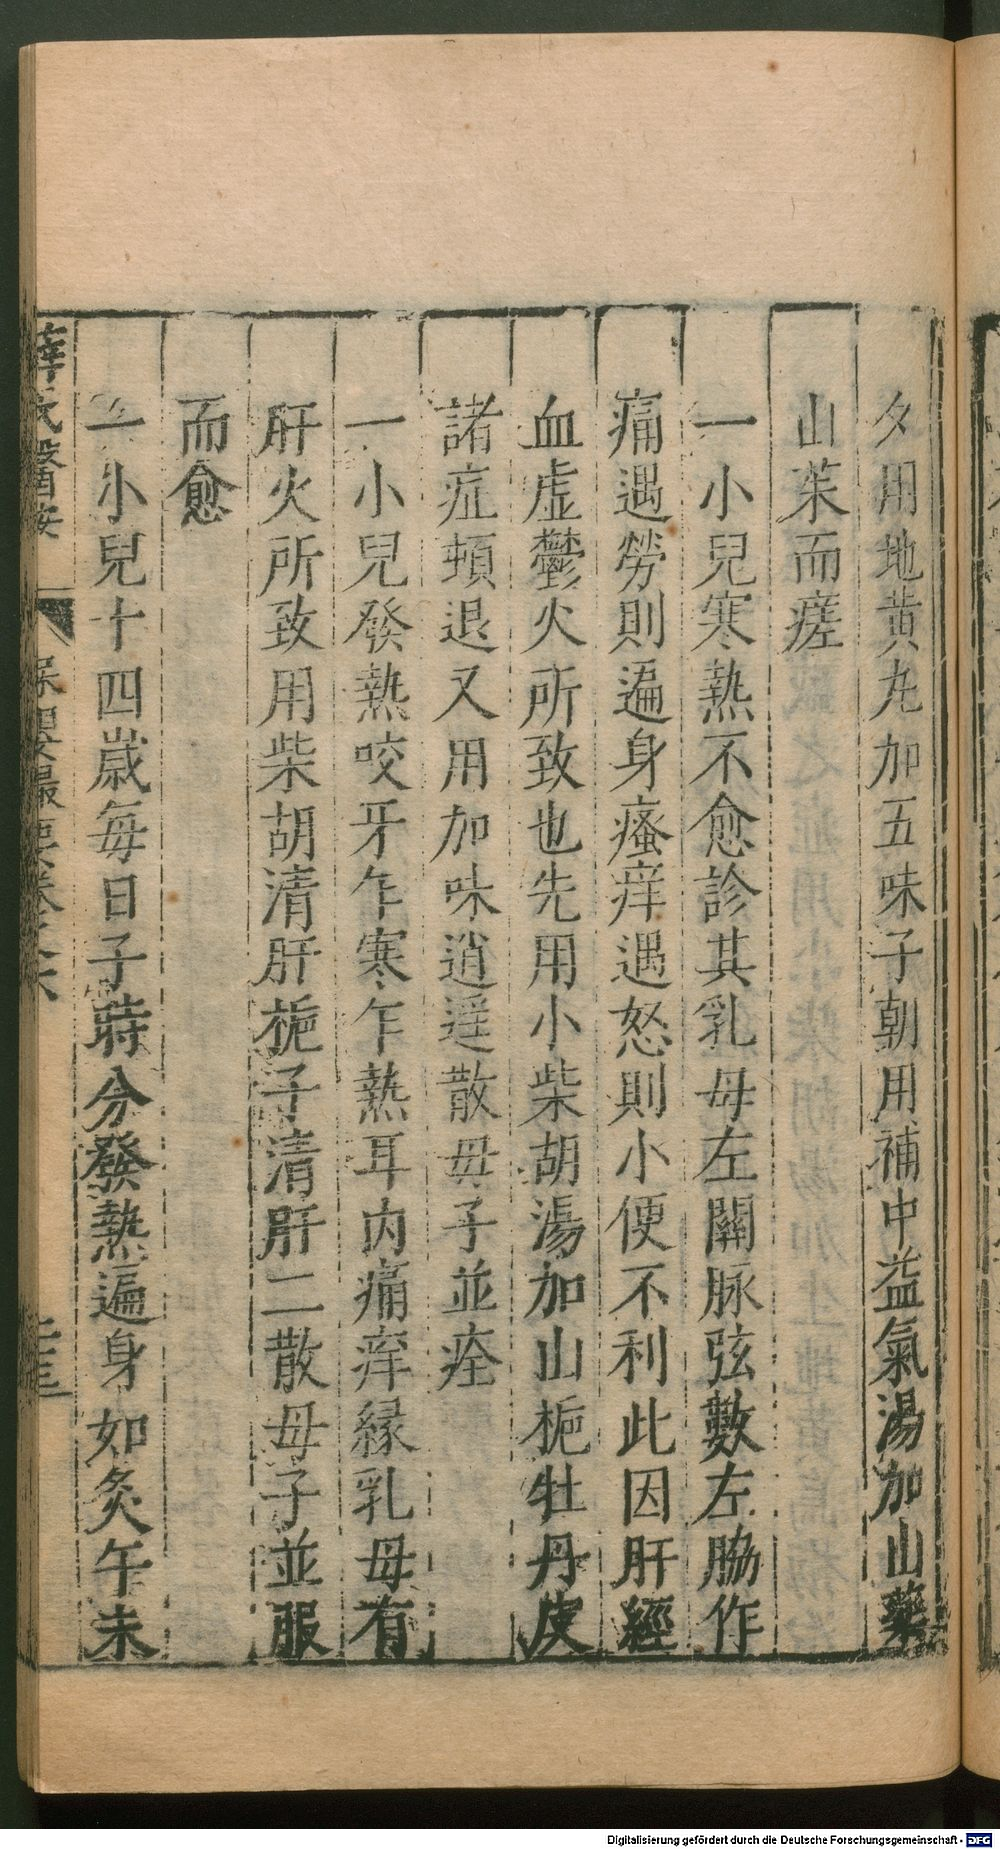 夕用地黄丸加五味子朝用補中益氣湯加山藥
山茱而瘥
一小兒寒熱不愈診其乳母左關脉弦數左脇作
痛遇勞則遍身瘙痒遇怒則小便不利此因肝經
血虚鬱火所致也先用小柴胡湯加山梔牡丹皮
諸症頓退又用加味逍遥散母子並痊
一小兒發熱咬牙乍寒乍熱耳内痛痒縁乳母有
肝火所致用柴胡清肝梔子清肝二散母子並服
而愈
一小兒十四歲每日子時分發熱遍身如炙午未
薛氏醫按
保嬰撮要卷之六
Digitalisierung gefördert durch die Deutsche Forschungsgemeinschaft - DFG